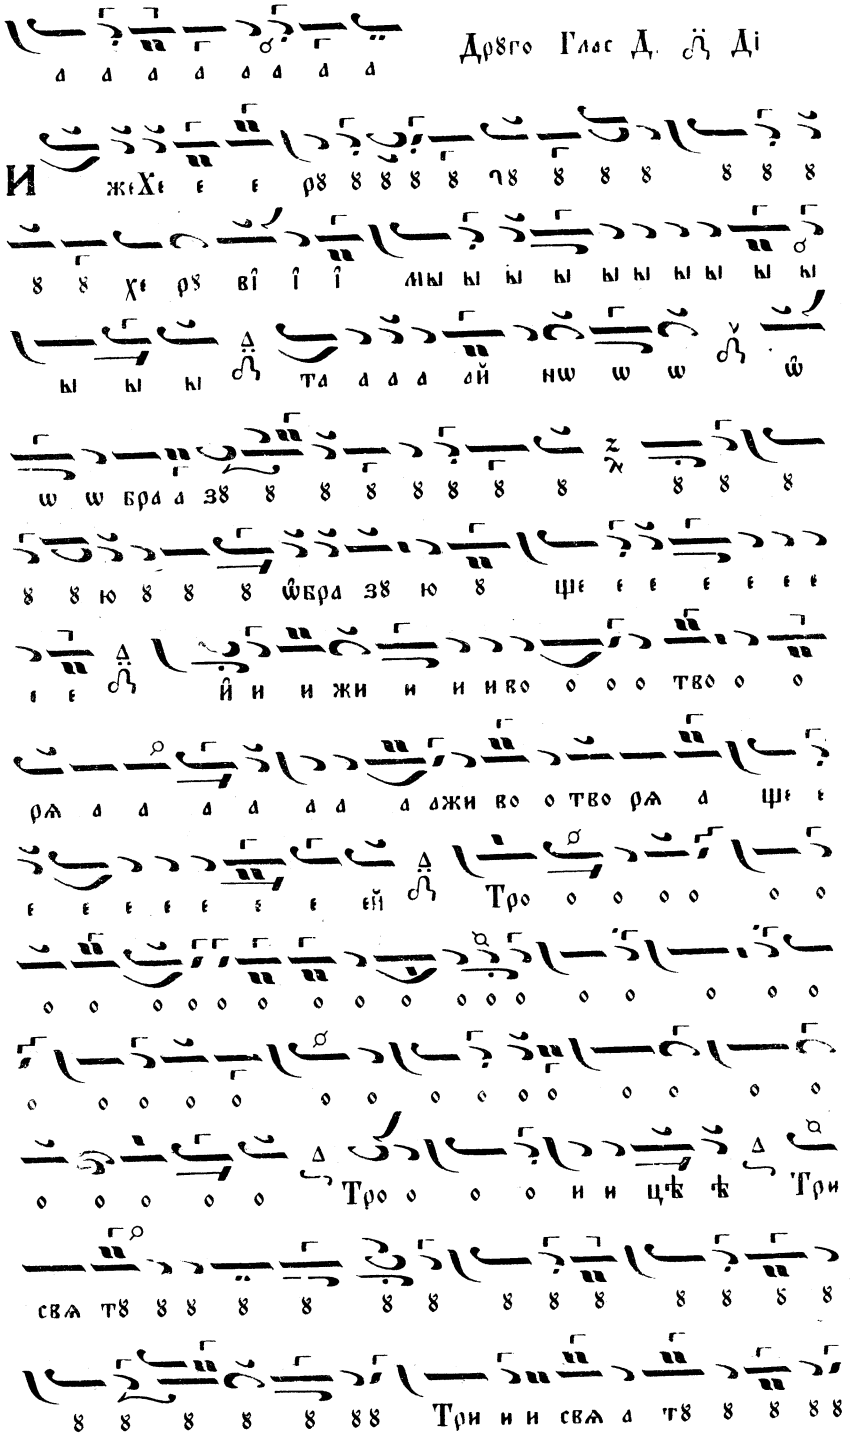 а а а а а а а а Дрꙋго Глас Д. Ді
И жеХе е е рꙋ ꙋ ꙋ ꙋ ꙋ гꙋ ꙋ ꙋ ꙋ ꙋ ꙋ ꙋ
ꙋ ꙋ хе рꙋ ві і і мы ы ы ы ы ы ы ы ы ы
ы ы ы та а а а ай нѡ ѡ ѡ ѡ
ѡ ѡ бра а зꙋ ꙋ ꙋ ꙋ ꙋ ꙋ ꙋ ꙋ ꙋ ꙋ ꙋ
ꙋ ꙋ ю ꙋ ꙋ ꙋ ѡбра зꙋ ю ꙋ ще е е е е е е
е е й и и жи и и и во о о о тво о о
рѧ а а а а а а а ажи во о тво рѧ а ще е
е е е е е е е ей Тро о о о о о о
о о о о о о о о о о о о о о о о о
о о о о о о о о о о о о о о
о о о о о Тро о о о и и цѣ ѣ Три
свѧ тꙋ ꙋ ꙋ ꙋ ꙋ ꙋ ꙋ ꙋ ꙋ ꙋ ꙋ ꙋ ꙋ ꙋ
ꙋ ꙋ ꙋ ꙋ ꙋ ꙋ ꙋ Три и и свѧ а тꙋ ꙋ ꙋ ꙋ ꙋ